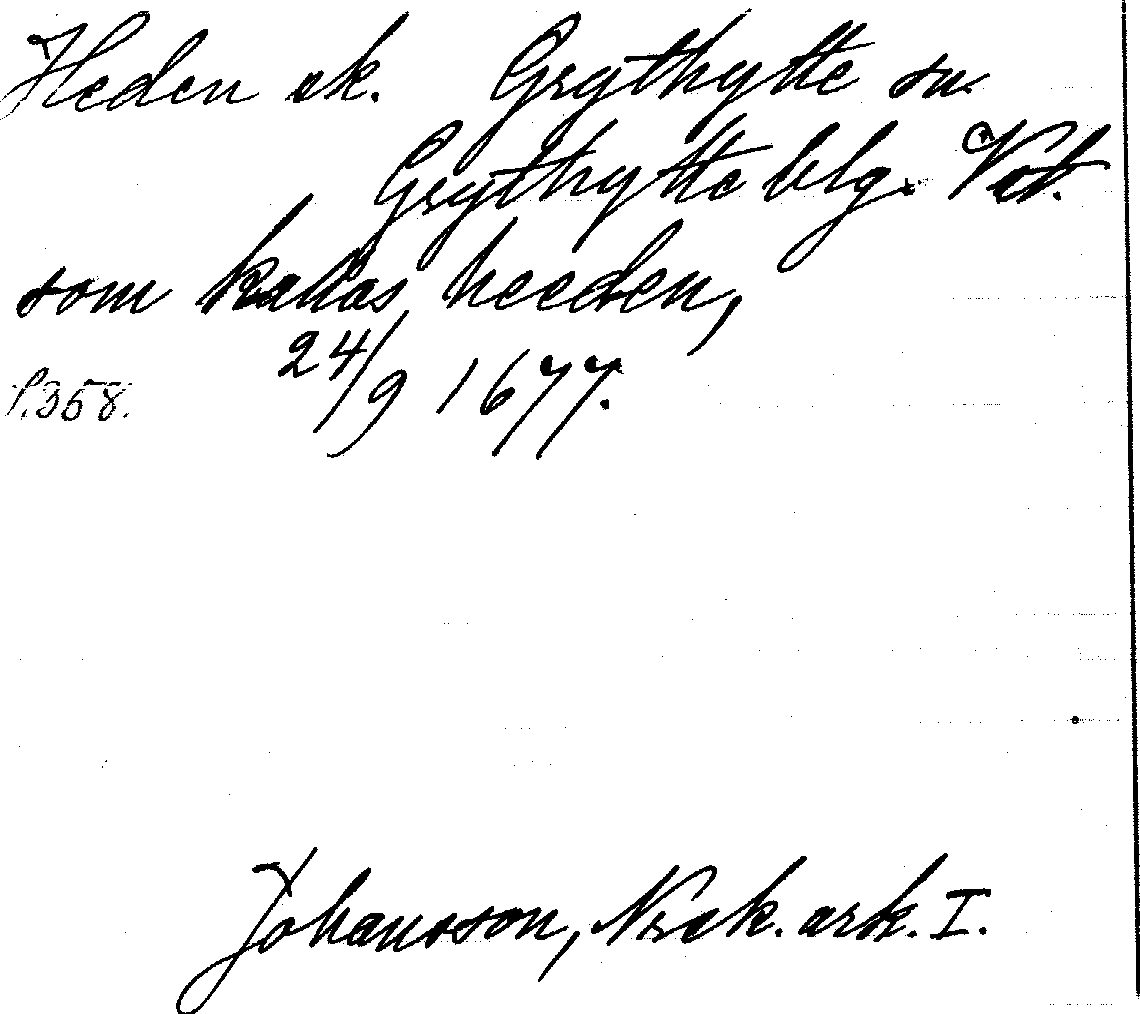 Heden ek. Grythytte sn.
Grythytte blg. Vstm.
som kallas heeden,
24/9 1677.
S. 358.
Johansson, Norsk. ark. I.